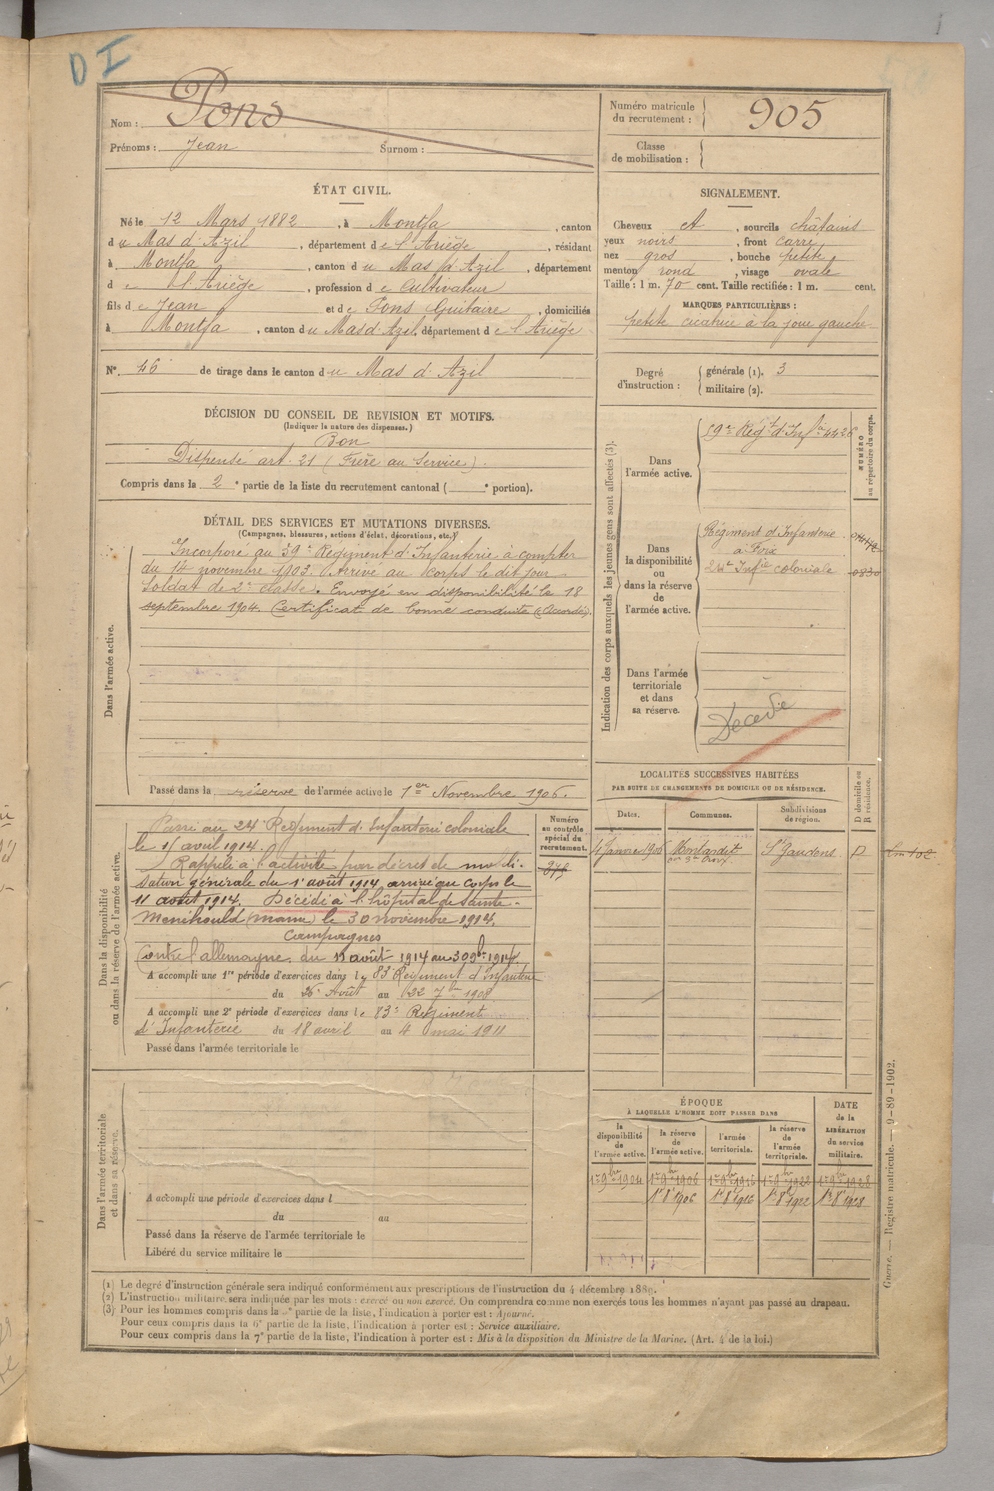 D I
Nom : Pons
Prénoms : Jean Surnom :
Numéro matricule du recrutement : 905
Classe de mobilisation :
ÉTAT CIVIL.
Né le 12 Mars 1882, à Montfa, canton
du Mas d'Azil, département de l'Ariège, résidant
à Montfa, canton du Mas d'Azil, département
de l'Ariège, profession de Cultivateur
fils de Jean et de Pons Guitaire, domiciliés
à Montfa, canton du Mas d'Azil, département de l'Ariège
N° 46 de tirage dans le canton du Mas d'Azil
SIGNALEMENT.
Cheveux et, sourcils châtains
yeux noirs, front carré
nez gros, bouche petite
menton rond, visage ovale
Taille : 1 m. 70 cent. Taille rectifiée : 1 m. cent.
MARQUES PARTICULIÈRES :
petite cicatrice à la joue gauche
Degré d'instruction : générale (1). 3
militaire (2).
DÉCISION DU CONSEIL DE REVISION ET MOTIFS.
(Indiquer la nature des dispenses.)
Bon
Dispensé art. 21 (Frère au Service).
Compris dans la 2e partie de la liste du recrutement cantonal (e portion).
DÉTAIL DES SERVICES ET MUTATIONS DIVERSES.
(Campagnes, blessures, actions d'éclat, décorations, etc.)
Dans l'armée active.
Incorporé au 59e Régiment d'Infanterie à compter
du 14 novembre 1903. Arrivé au corps le dit jour
Soldat de 2e classe. Envoyé en disponibilité le 18
septembre 1904. Certificat de bonne conduite (Accordé).
Passé dans la réserve de l'armée active le 1er Novembre 1906.
Indication des corps auxquels les jeunes gens sont affectés (3).
NUMÉRO au répertoire du corps.
Dans l'armée active.
59e Régt d'Infie 4426
Dans la disponibilité ou dans la réserve de l'armée active.
Régiment d'Infanterie
à Foix
24e Infie coloniale 0830
Dans l'armée territoriale et dans sa réserve.
Décédé
Dans la disponibilité ou dans la réserve de l'armée active.
Numéro au contrôle spécial du recrutement.
Passé au 24e Régiment d'Infanterie coloniale
le 15 avril 1914.
Rappelé à l'activité par décret de mobili-
sation générale du 1er août 1914, arrivé au corps le
11 août 1914. Décédé à l'hôpital de Sainte-
Menéhould (Marne) le 30 novembre 1914.
Campagnes
Contre l'allemagne, du 11 août 1914 au 30 9bre 1914.
A accompli une 1re période d'exercices dans le 83e Régiment d'Infanterie
du 26 Août au 22 7bre 1908
A accompli une 2e période d'exercices dans le 83e Régiment
d'Infanterie du 18 avril au 4 mai 1911
Passé dans l'armée territoriale le
LOCALITÉS SUCCESSIVES HABITÉES
PAR SUITE DE CHANGEMENTS DE DOMICILE OU DE RÉSIDENCE.
Dates. Communes. Subdivisions de région. D domicile ou R résidence.
Janvier 1906 Montardit St Gaudens D
Dans l'armée territoriale et dans sa réserve.
A accompli une période d'exercices dans l
du au
Passé dans la réserve de l'armée territoriale le
Libéré du service militaire le
ÉPOQUE
À LAQUELLE L'HOMME DOIT PASSER DANS
la disponibilité de l'armée active. la réserve de l'armée active. l'armée territoriale. la réserve de l'armée territoriale. DATE de la LIBÉRATION du service militaire.
1er 9bre 1904 1er 9bre 1906 1er 9bre 1916 1er 9bre 1922 1er 9bre 1928
1er 8 1906 1er 8 1916 1er 8 1922 1er 8 1928
Guerre. — Registre matricule. — 9-89-1902.
(1) Le degré d'instruction générale sera indiqué conformément aux prescriptions de l'instruction du 4 décembre 1889.
(2) L'instruction militaire sera indiquée par les mots : exercé ou non exercé. On comprendra comme non exercés tous les hommes n'ayant pas passé au drapeau.
(3) Pour les hommes compris dans la 5e partie de la liste, l'indication à porter est : Ajourné.
Pour ceux compris dans la 6e partie de la liste, l'indication à porter est : Service auxiliaire.
Pour ceux compris dans la 7e partie de la liste, l'indication à porter est : Mis à la disposition du Ministre de la Marine. (Art. 4 de la loi.)